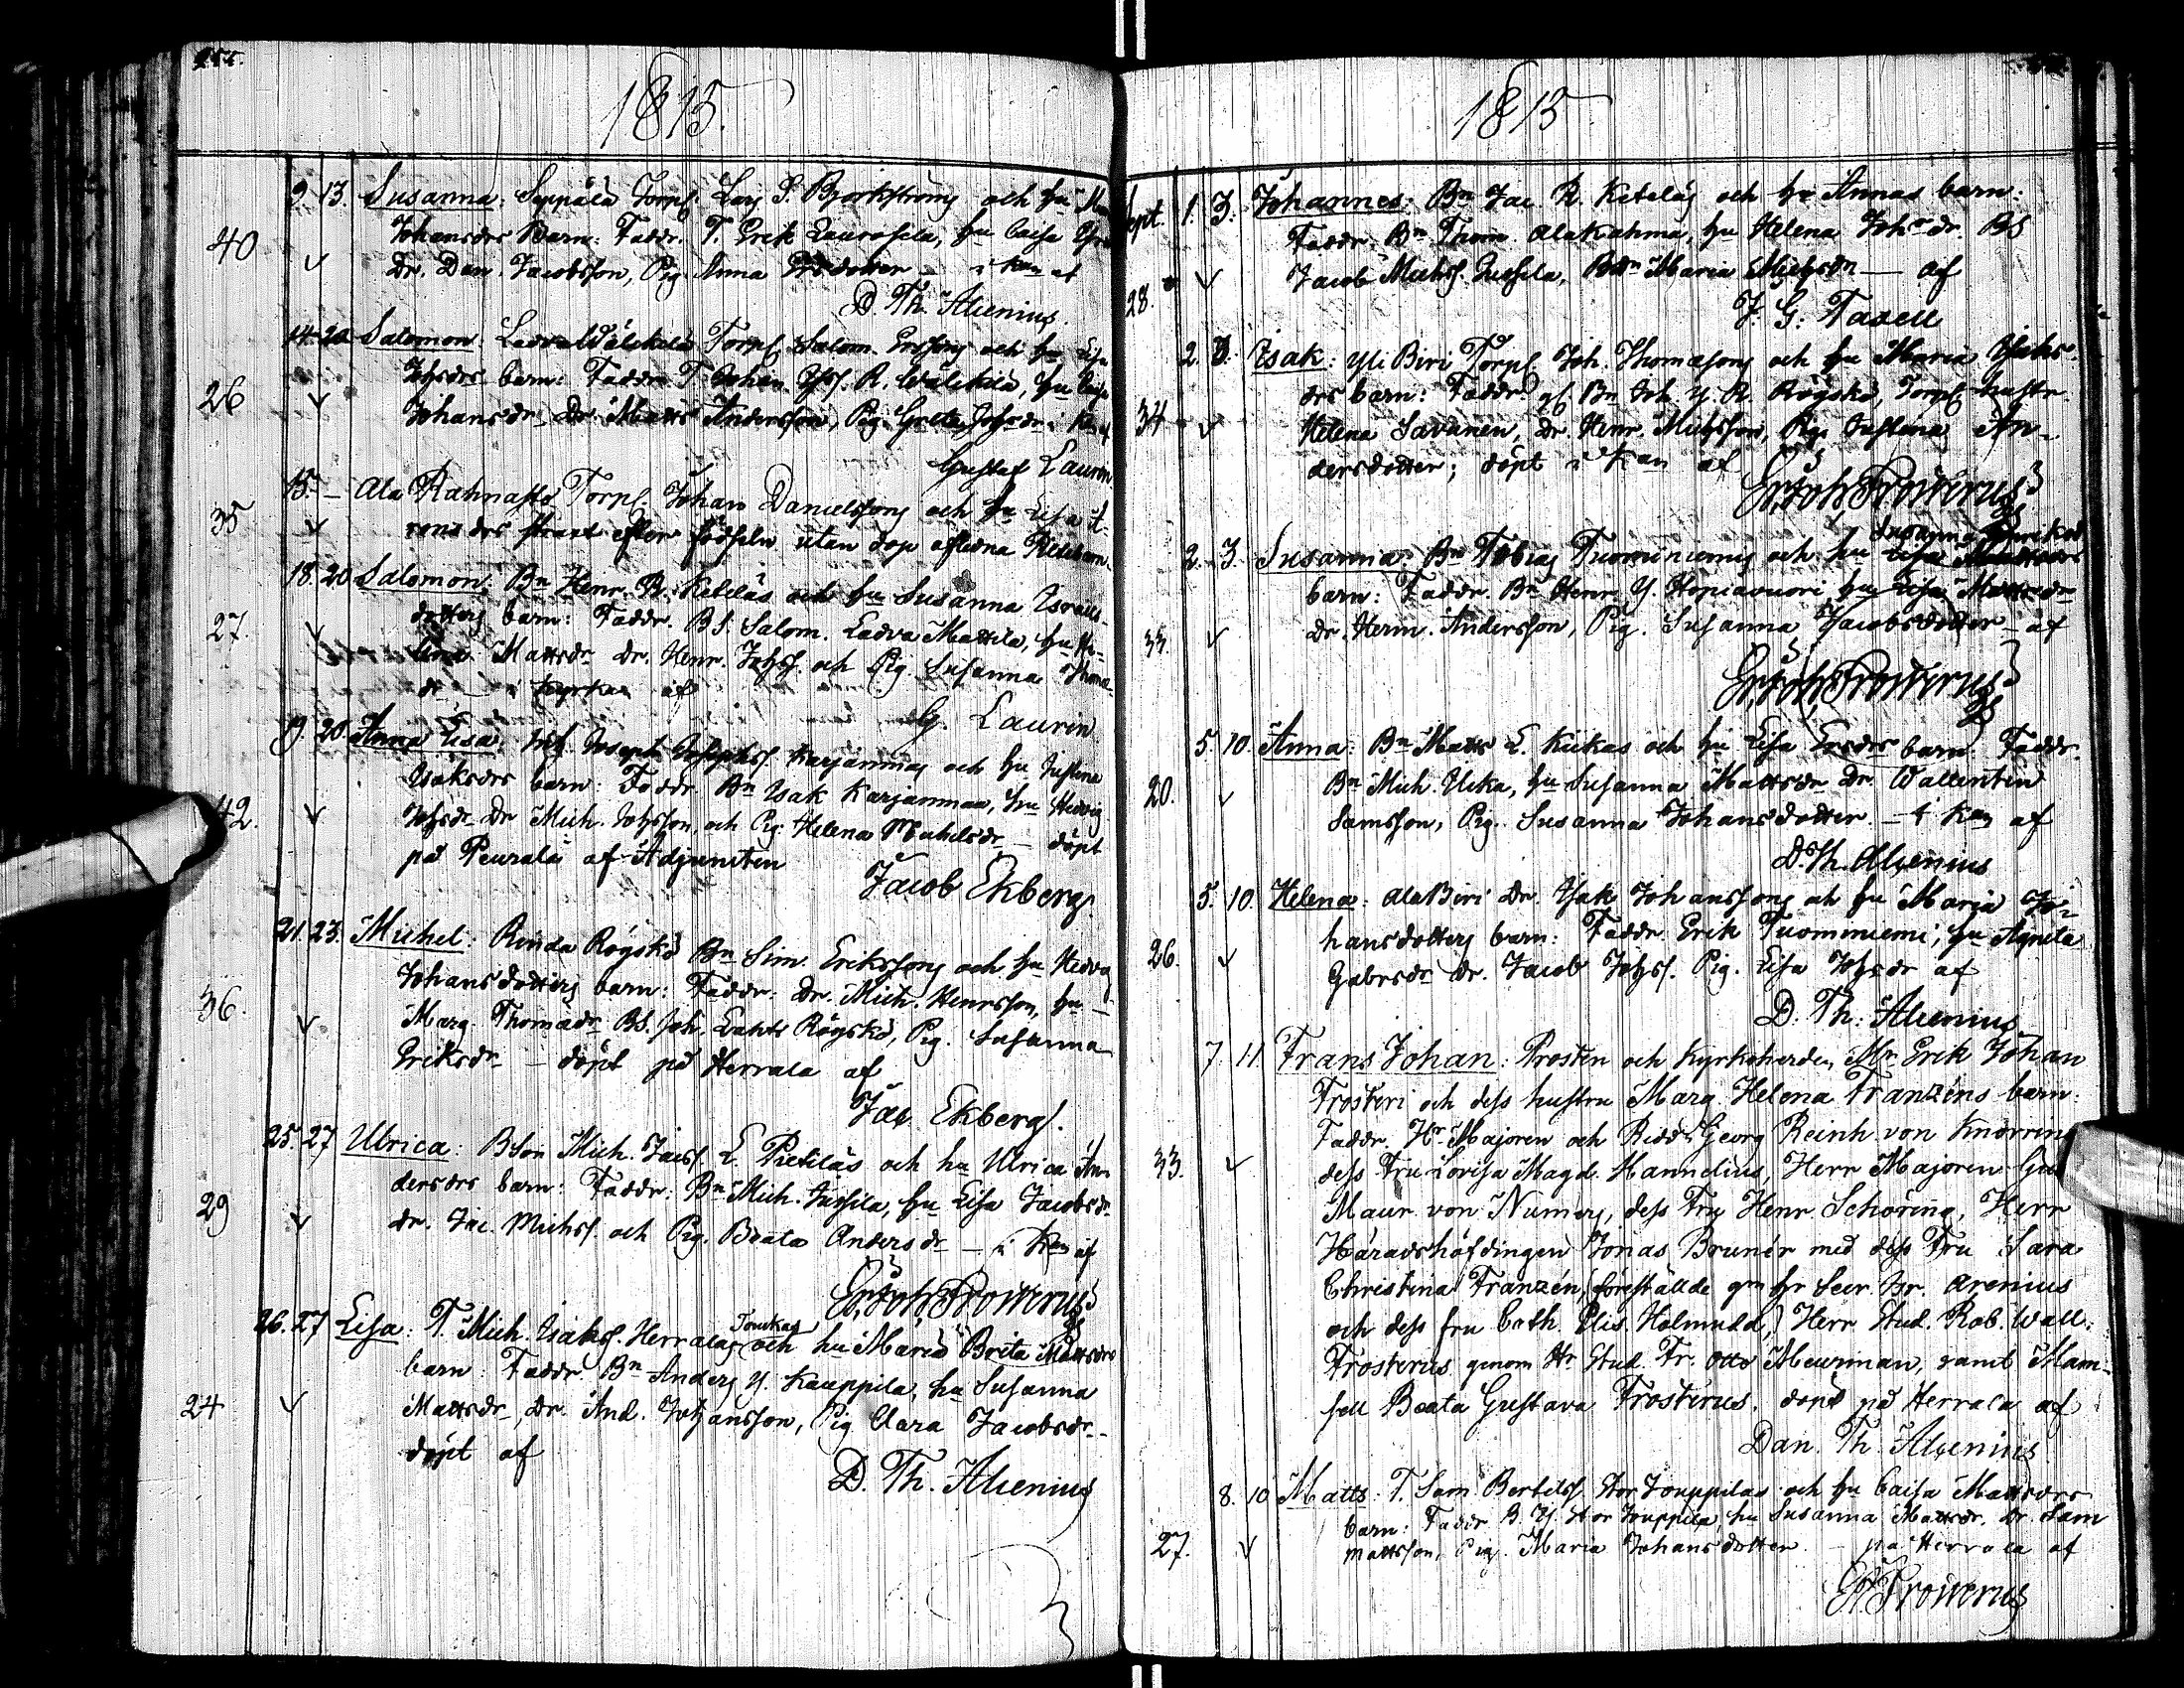 1815.
9. 13. Susanna: Seppälä Torp. Lars S. Björkströms och hu
40 Johansdrs Barn: Faddr. T. Erik Laurosela, hu Caisa
Dr. Dan. Jacobsson, Pig. Anna Ersdotter – i kan af
D. Th. Alcenius.
14. 20. Salomon: Torp. Salom. Erssons och hu Lisa
26 Johsdrs barn: Faddr. T. Johan R. Wälikilä, hu Caisa
Johansdr Dr. Matts Andersson, Pig. Greta Johsdr i
Gustaf Laurin
15. – Ala Rahnasto Torp. Johan Danielssons och hu Lisa
35 rons drs straxt efter födseln utan dop aflidna
18. 20. Salomon: Bn Henr. R. Ketelás och hu Susanna Israels
27. dotters barn: Faddr. BS. Salom. Ladva Mattila, hu He-
lena Mattsdr Dr. Henr. Johss. och Pig Susanna Thoma
dr – i kyrkan af
G. Laurin
19. 20. Anna Lisa: Inh. Joseph Josephss. Karjanmas och hu Justina
Isaksdrs barn: Faddr. Bn Isak Karjanmaa, hu Hedvig
42. Johsdr Dr Mich. Johsson, och Pig: Helena Michelsdr – döpt
på Peurala af Adjuncten
Jacob Ekberg.
21. 23. Michel: Rinda Röyskö Bn Sim. Erikssons och hu Hedvig
Johansdotters barn: Faddr: Dr. Mich. Henrsson, hu
36. Marg. Thomadr BS. Joh. Lahts Röyskö, Pig. Susanna
Eriksdr – döpt på Herrala af
Jac. Ekberg.
25. 27 Ulrica: BSon Mich. Jacss. L. Pietiläs och hu Ulrica An
dersdrs barn: Faddr: Bn Mich. Jussila, hu Lisa Jacobsdr
29 Dr. Jac. Michss. och Pig. Beata Andersdr – i kan af
Er. Joh. Frosterus
26. 27 Lisa: T. Mich. Isakss. Herralas och hu Maria Brita Mattsdrs
barn: Faddr. Bn Anders Y. Kauppila, hu Susanna
24 Mattsdr, Dr. And. Johansson, Pig Clara Jacobsdr –
döpt af
D. Th. Alcenius
1815
Sept. 1. 3. Johannes: Bn Jac R. Ketelás och hu Annas barn:
Faddr: Bn Thom. Alakahma, hu Helena Johsdr. BS
28. Jacob Michss. Jussila, Maria Michsdr – af
J. G: Taxell
2. 3. Isak: Yli Biri Torp. Joh. Thomassons och hu Maria Isaks
drs barn: Faddr. gl. Bn Joh. Y. R. Röyskö, Torp. hustr
34 Helena Savanen, Dr. Henr. Michsson, Pig. Justina An-
dersdotter; döpt i kan af
Er. Joh. Frosterus
Susanna Eriksd
2. 3. Susanna: Bn Tobias Tuominiemis och hu
barn: Faddr. Bn Henr. Y. Hopiavuori, hu Lisa Mattsdr
33. Dr. Herm. Andersson, Pig. Susanna Jacobsdotter – af
Er. Joh. Frosterus
5. 10. Anna: Bn Matts L. Kuckas och hu Lisa Ersdrs barn. Faddr.
20. Bn Mich. Ucka, hu Susanna Mattsdr Dr. Wallentin
Samsson, Pig. Susanna Johansdotter. – i kan af
D. Th. Alcenius
5. 10. Helena: Ala Biri Dr. Isak Johanssons och hu Maria Jo-
26. hansdotters barn: Faddr. Erik Tuominiemi, hu Agneta
Gabrsdr Dr. Jacob Johss. Pig. Lisa Johsdr af
D. Th: Alcenius
7. 11. Frans Johan: Prosten och kyrkoherden Mr Erik Johan
Frosteri och dess hustru Marg. Helena Franzéns barn:
33. Faddr. Hr Majoren och Ridd. Georg Reinh. von Knorring
dess Fru Lovisa Magd. Hannelius, Herr Majoren
Maur. von Numers, dess Fru Henr. Schöring, Herr
Häradshöfdingen Jonas Brunér med dess Fru Sara
Christina Franzén, (föreställde gm hr Secr. Hr. Arenius
och dess fru Cath. Elis. Holmudd,) Herr Stud. Rob. Wall:
Frosterus genom Hr Stud. Fr. Otto Meurman, samt Mam-
sell Beata Gustava Frosterus. döpt på Herrala af
Dan. Th. Alcenius
8. 10 Matts: T. Sam Bertelss. Stor Jouppilas och hu Caisa Mattsdrs
barn: Faddr B. Y. Stor Jouppila, hu Susanna Mattsdr. Dr. Sam
27. Mattsson, Pig. Maria Johansdotter – på Herrala af
Frosterus